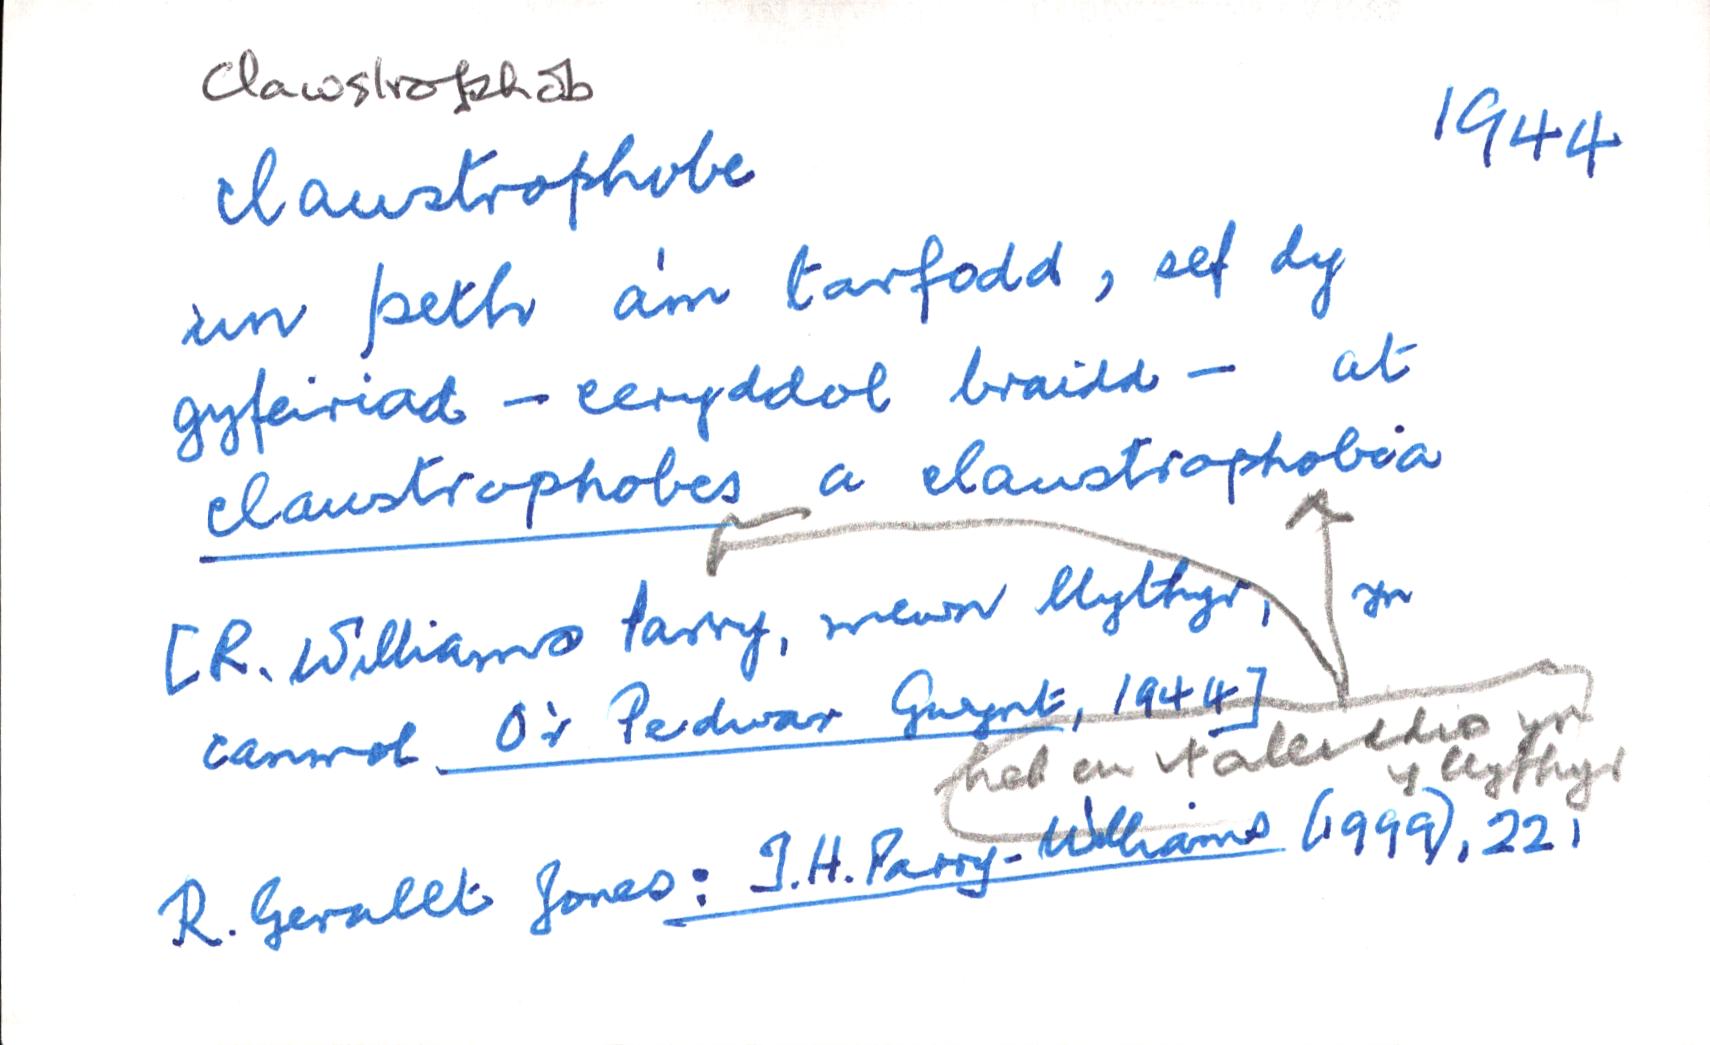 clawstroffôb
1944
claustrophobe
un peth a'm tarfodd, sef dy
gyfeiriad – ceryddol braidd – at
claustrophobes a claustrophobia
[R. Williams Parry, mewn llythyr, yn
canmol O'r Pedwar Gwynt, 1944]
heb eu italeiddio yn
y llythyr
R. Gerallt Jones: T.H. Parry-Williams (1999), 221